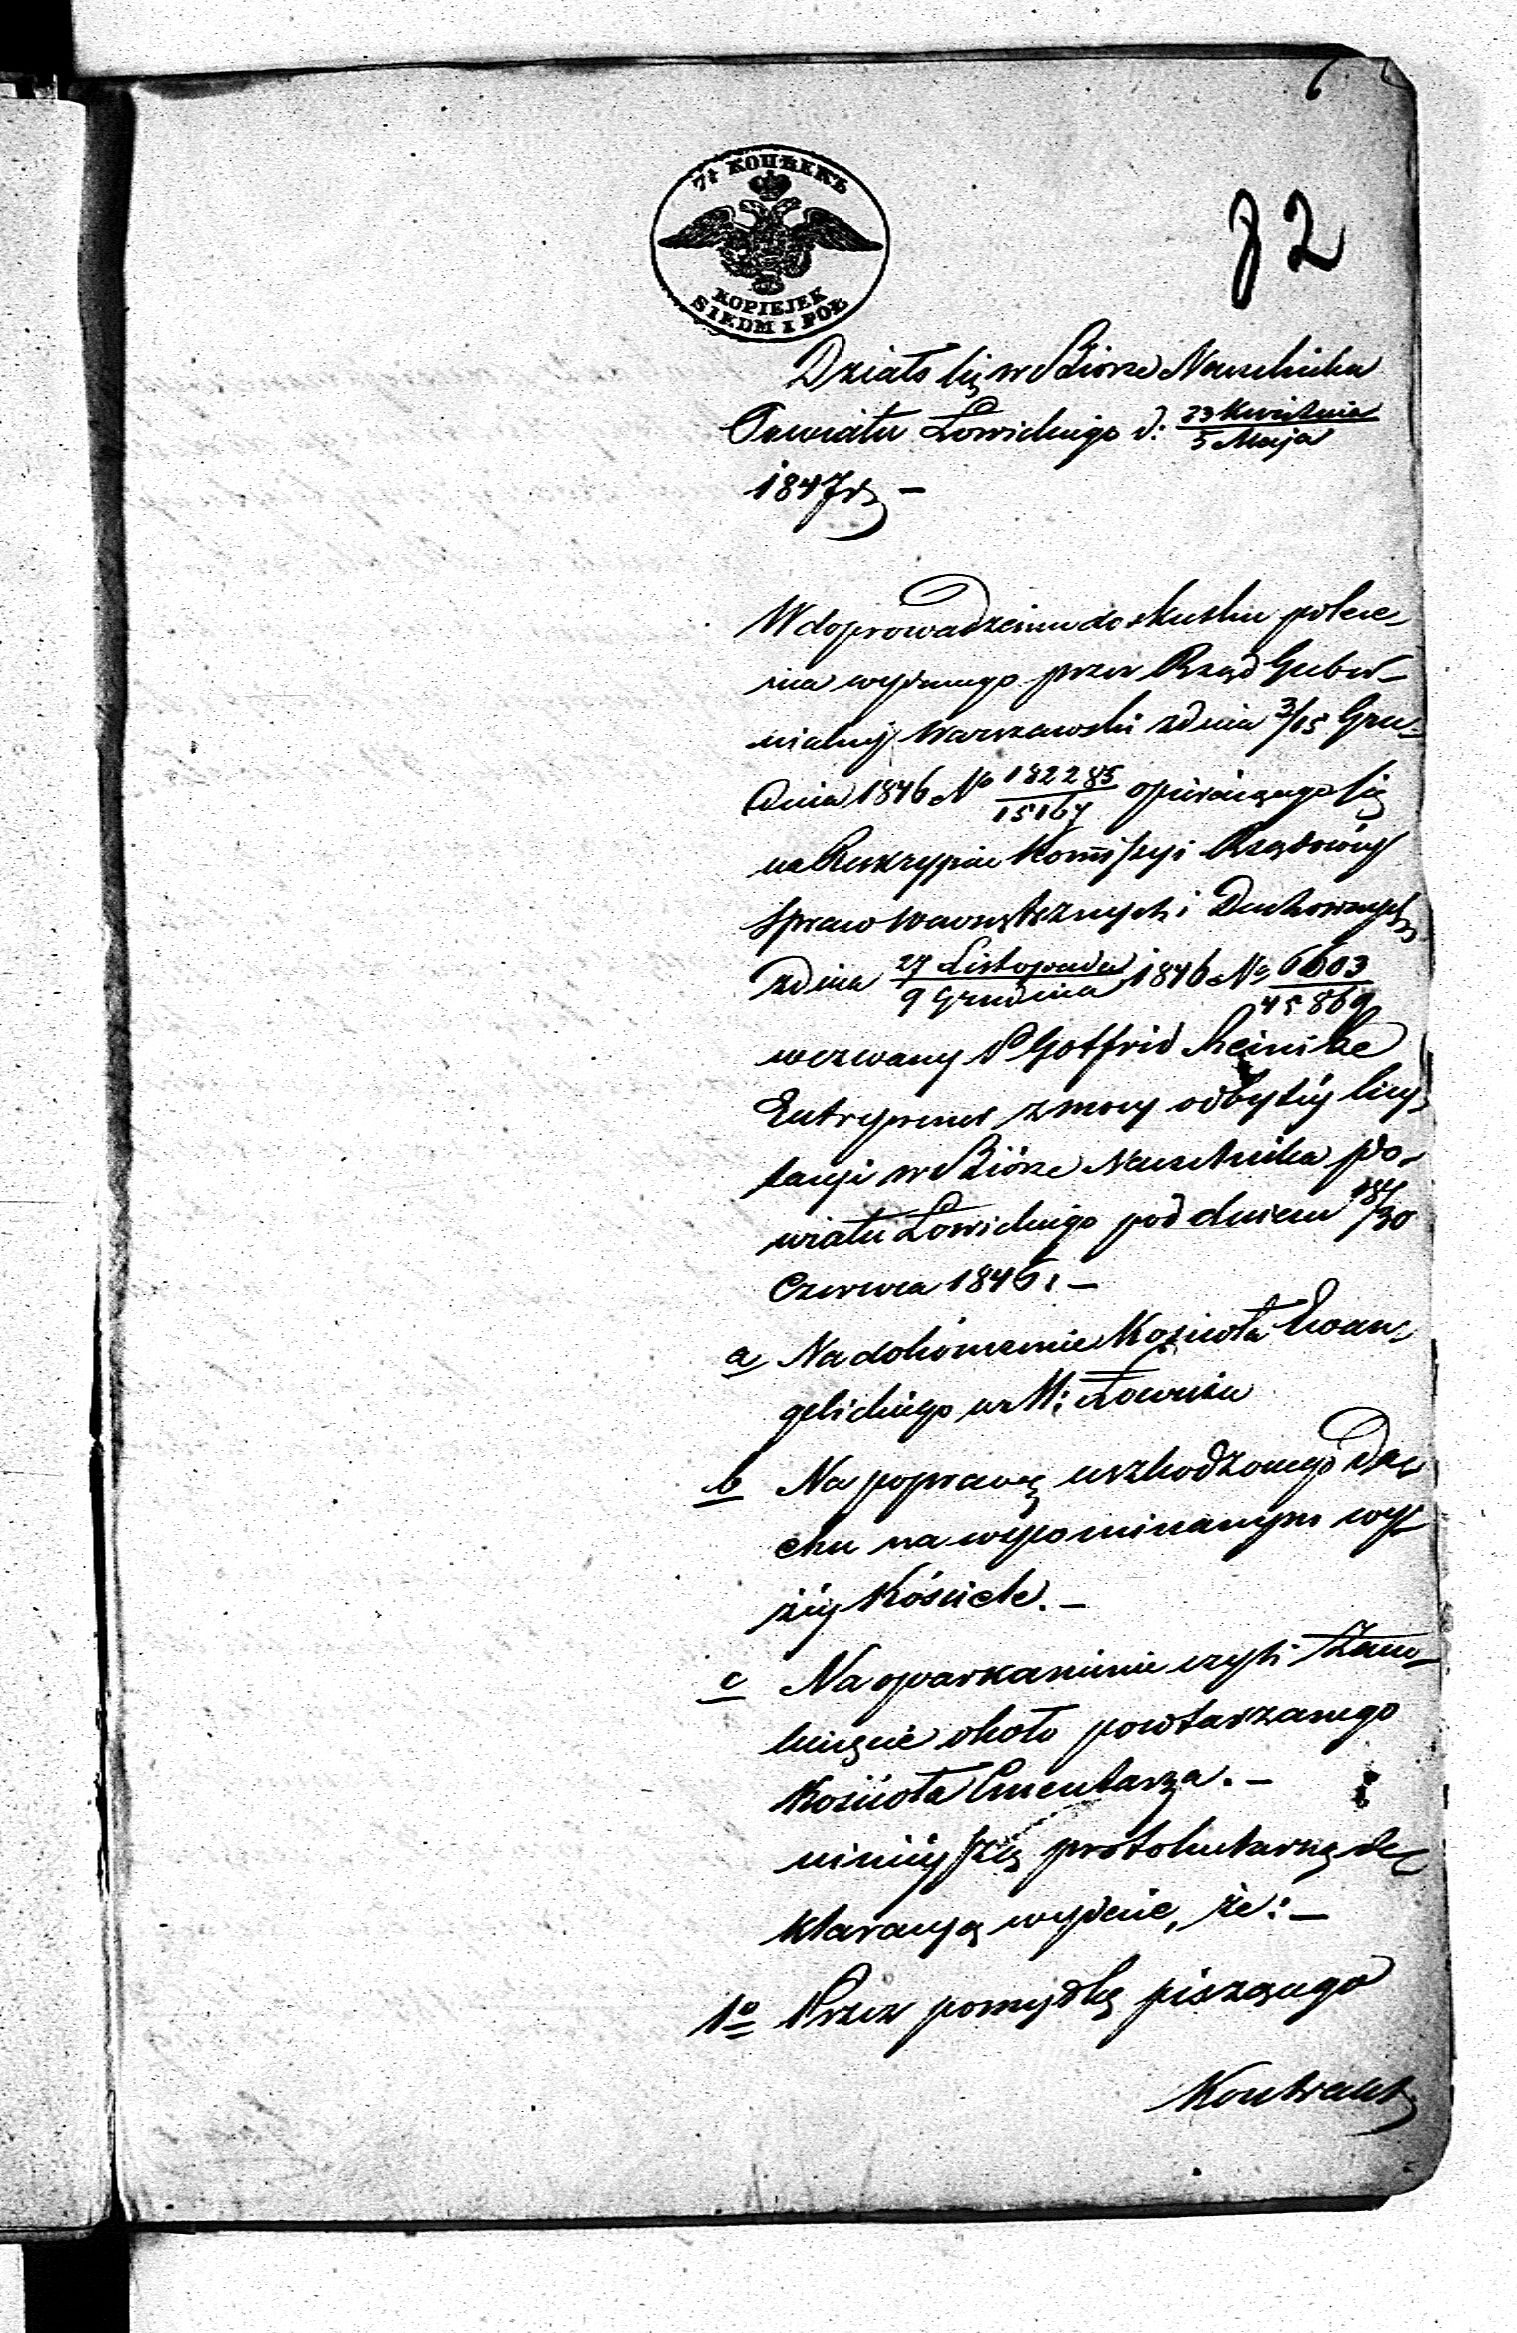 6
82
7½ КОПѢЕКЪ
KOPIEJEK
SIEDM I PÓŁ
Działo się w Biorze Naczelnika
Powiatu Łowickiego d: 23 Kwietnia / 5 Maja
1847 r. –
W doprowadzeniu do skutku polece-
nia wydanego przez Rząd Guber-
nialny Warszawski z dnia 3/15 Gru-
dnia 1846 No 182285/15167 opierającego się
na Reskrypcie Kommissyi Rządowéy
Spraw Wewnętrznych i Duchownych
z dnia 27 Listopada / 9 Grudnia 1846 No 6603/45869
wezwany P Gotfrid Reinike
Entreprener z mocy odbytéy licy-
tacyi w Biórze Naczelnika Po-
wiatu Łowickiego pod dniem 18/30
Czerwca 1846 r. –
a Na dokończenie Kościoła Ewan-
gelickiego w M: Łowiczu
b Na poprawę uszkodzonego Da-
chu na wspominanym wy-
żéy Kościele. –
c Na oparkanienie czyli Zam-
knięcie około powtarzanego
Kościoła Cmentarza. –
niniéyszą protokularną de-
klaracyą wydaie, że: –
1o Przez pomyłkę piszącego
Kontrakt